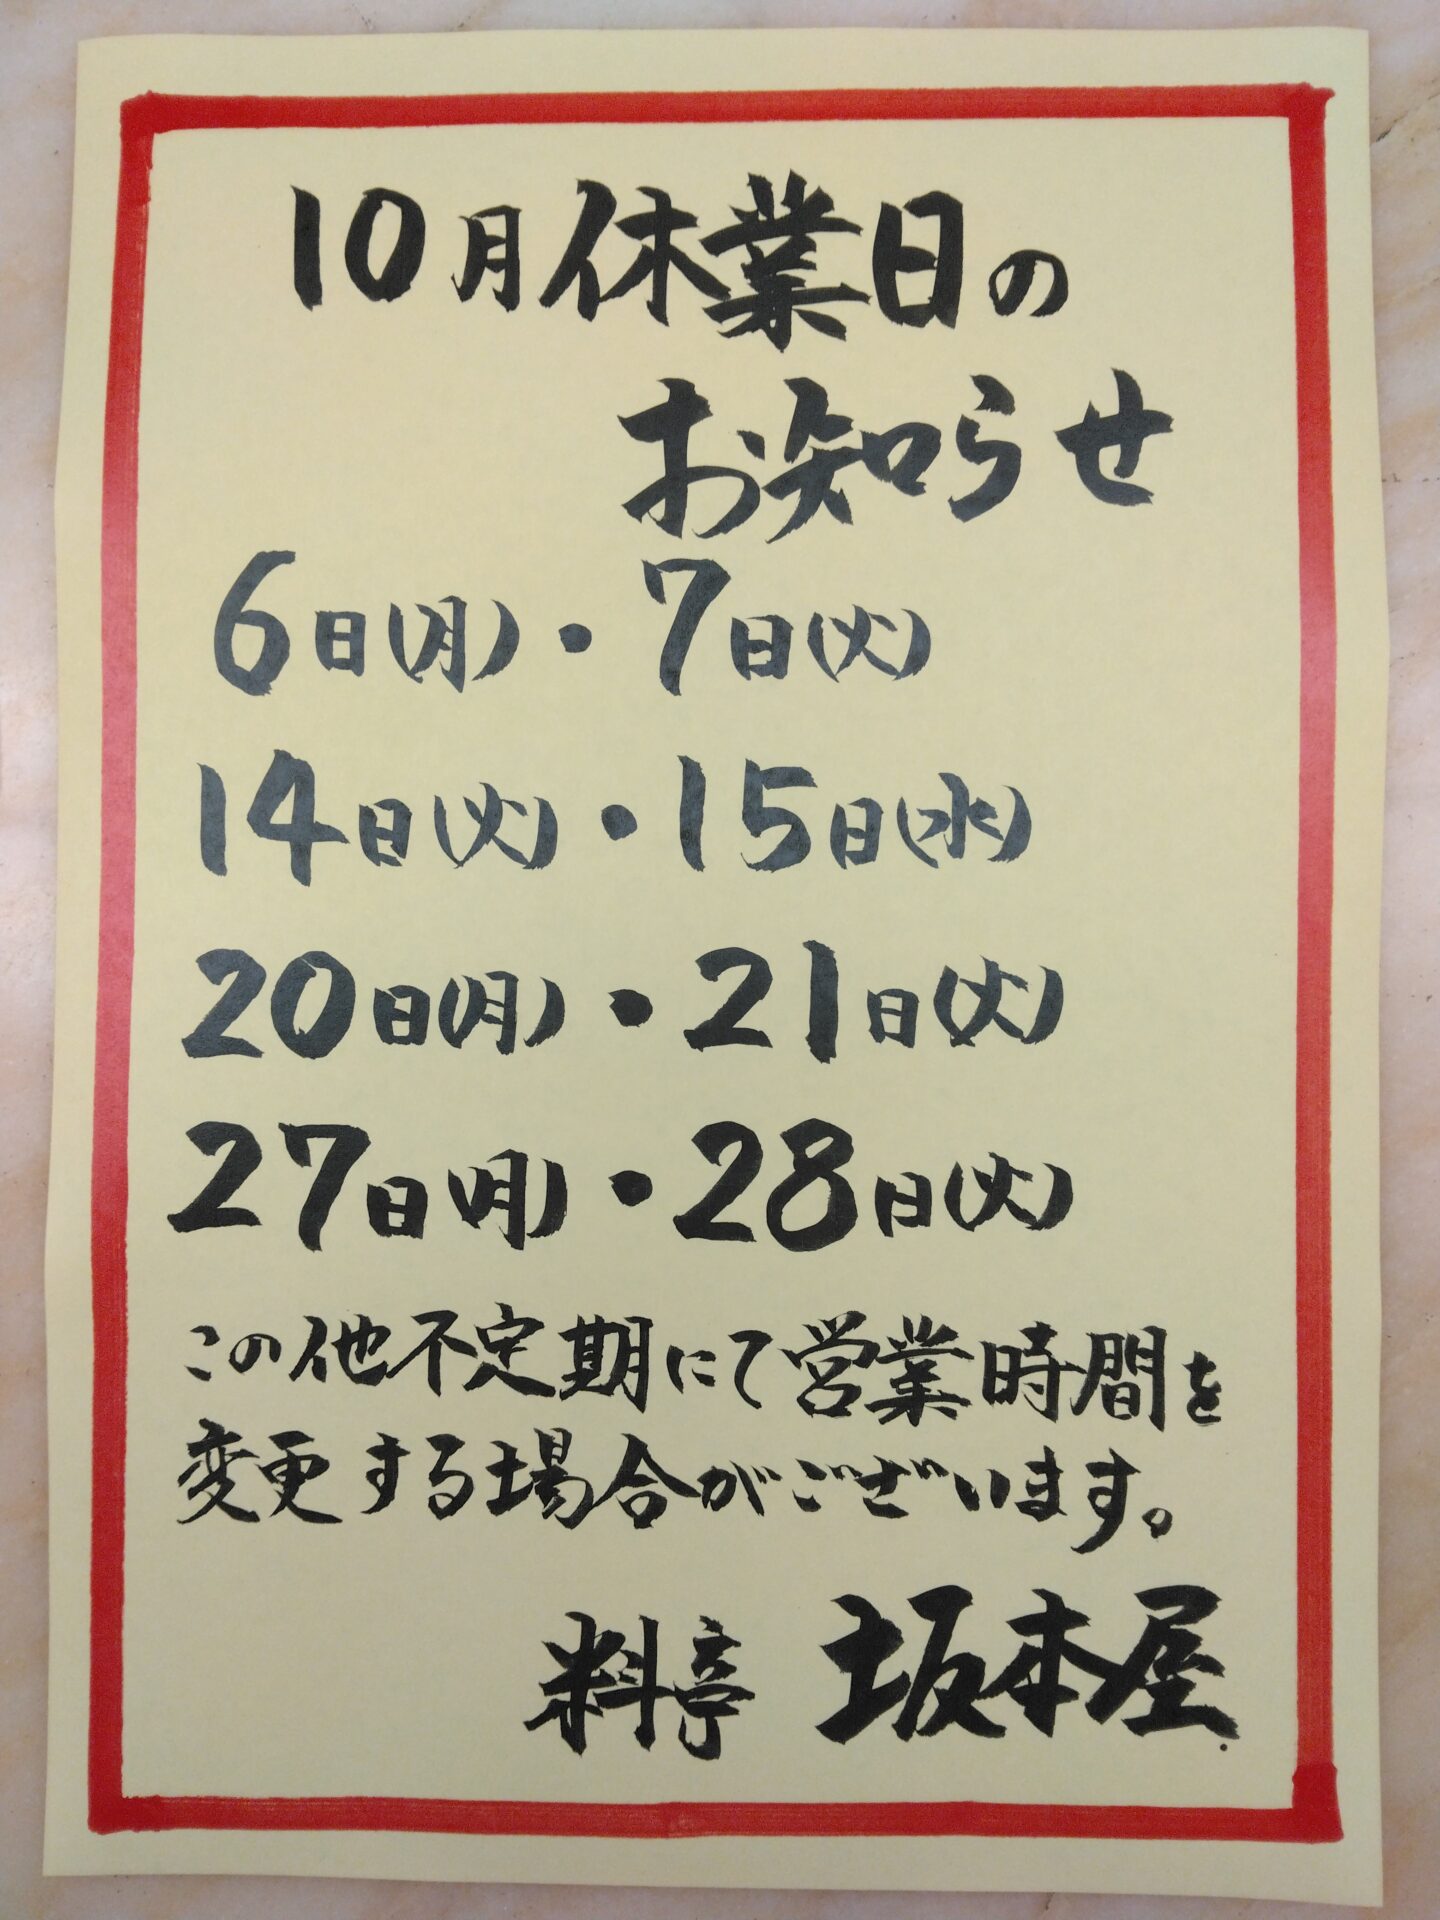 10月休業日の
お知らせ
6日(月)・7日(火)
14日(火)・15日(水)
20日(月)・21日(火)
27日(月)・28日(火)
この他不定期にて営業時間を
変更する場合がございます。
料亭 坂本屋